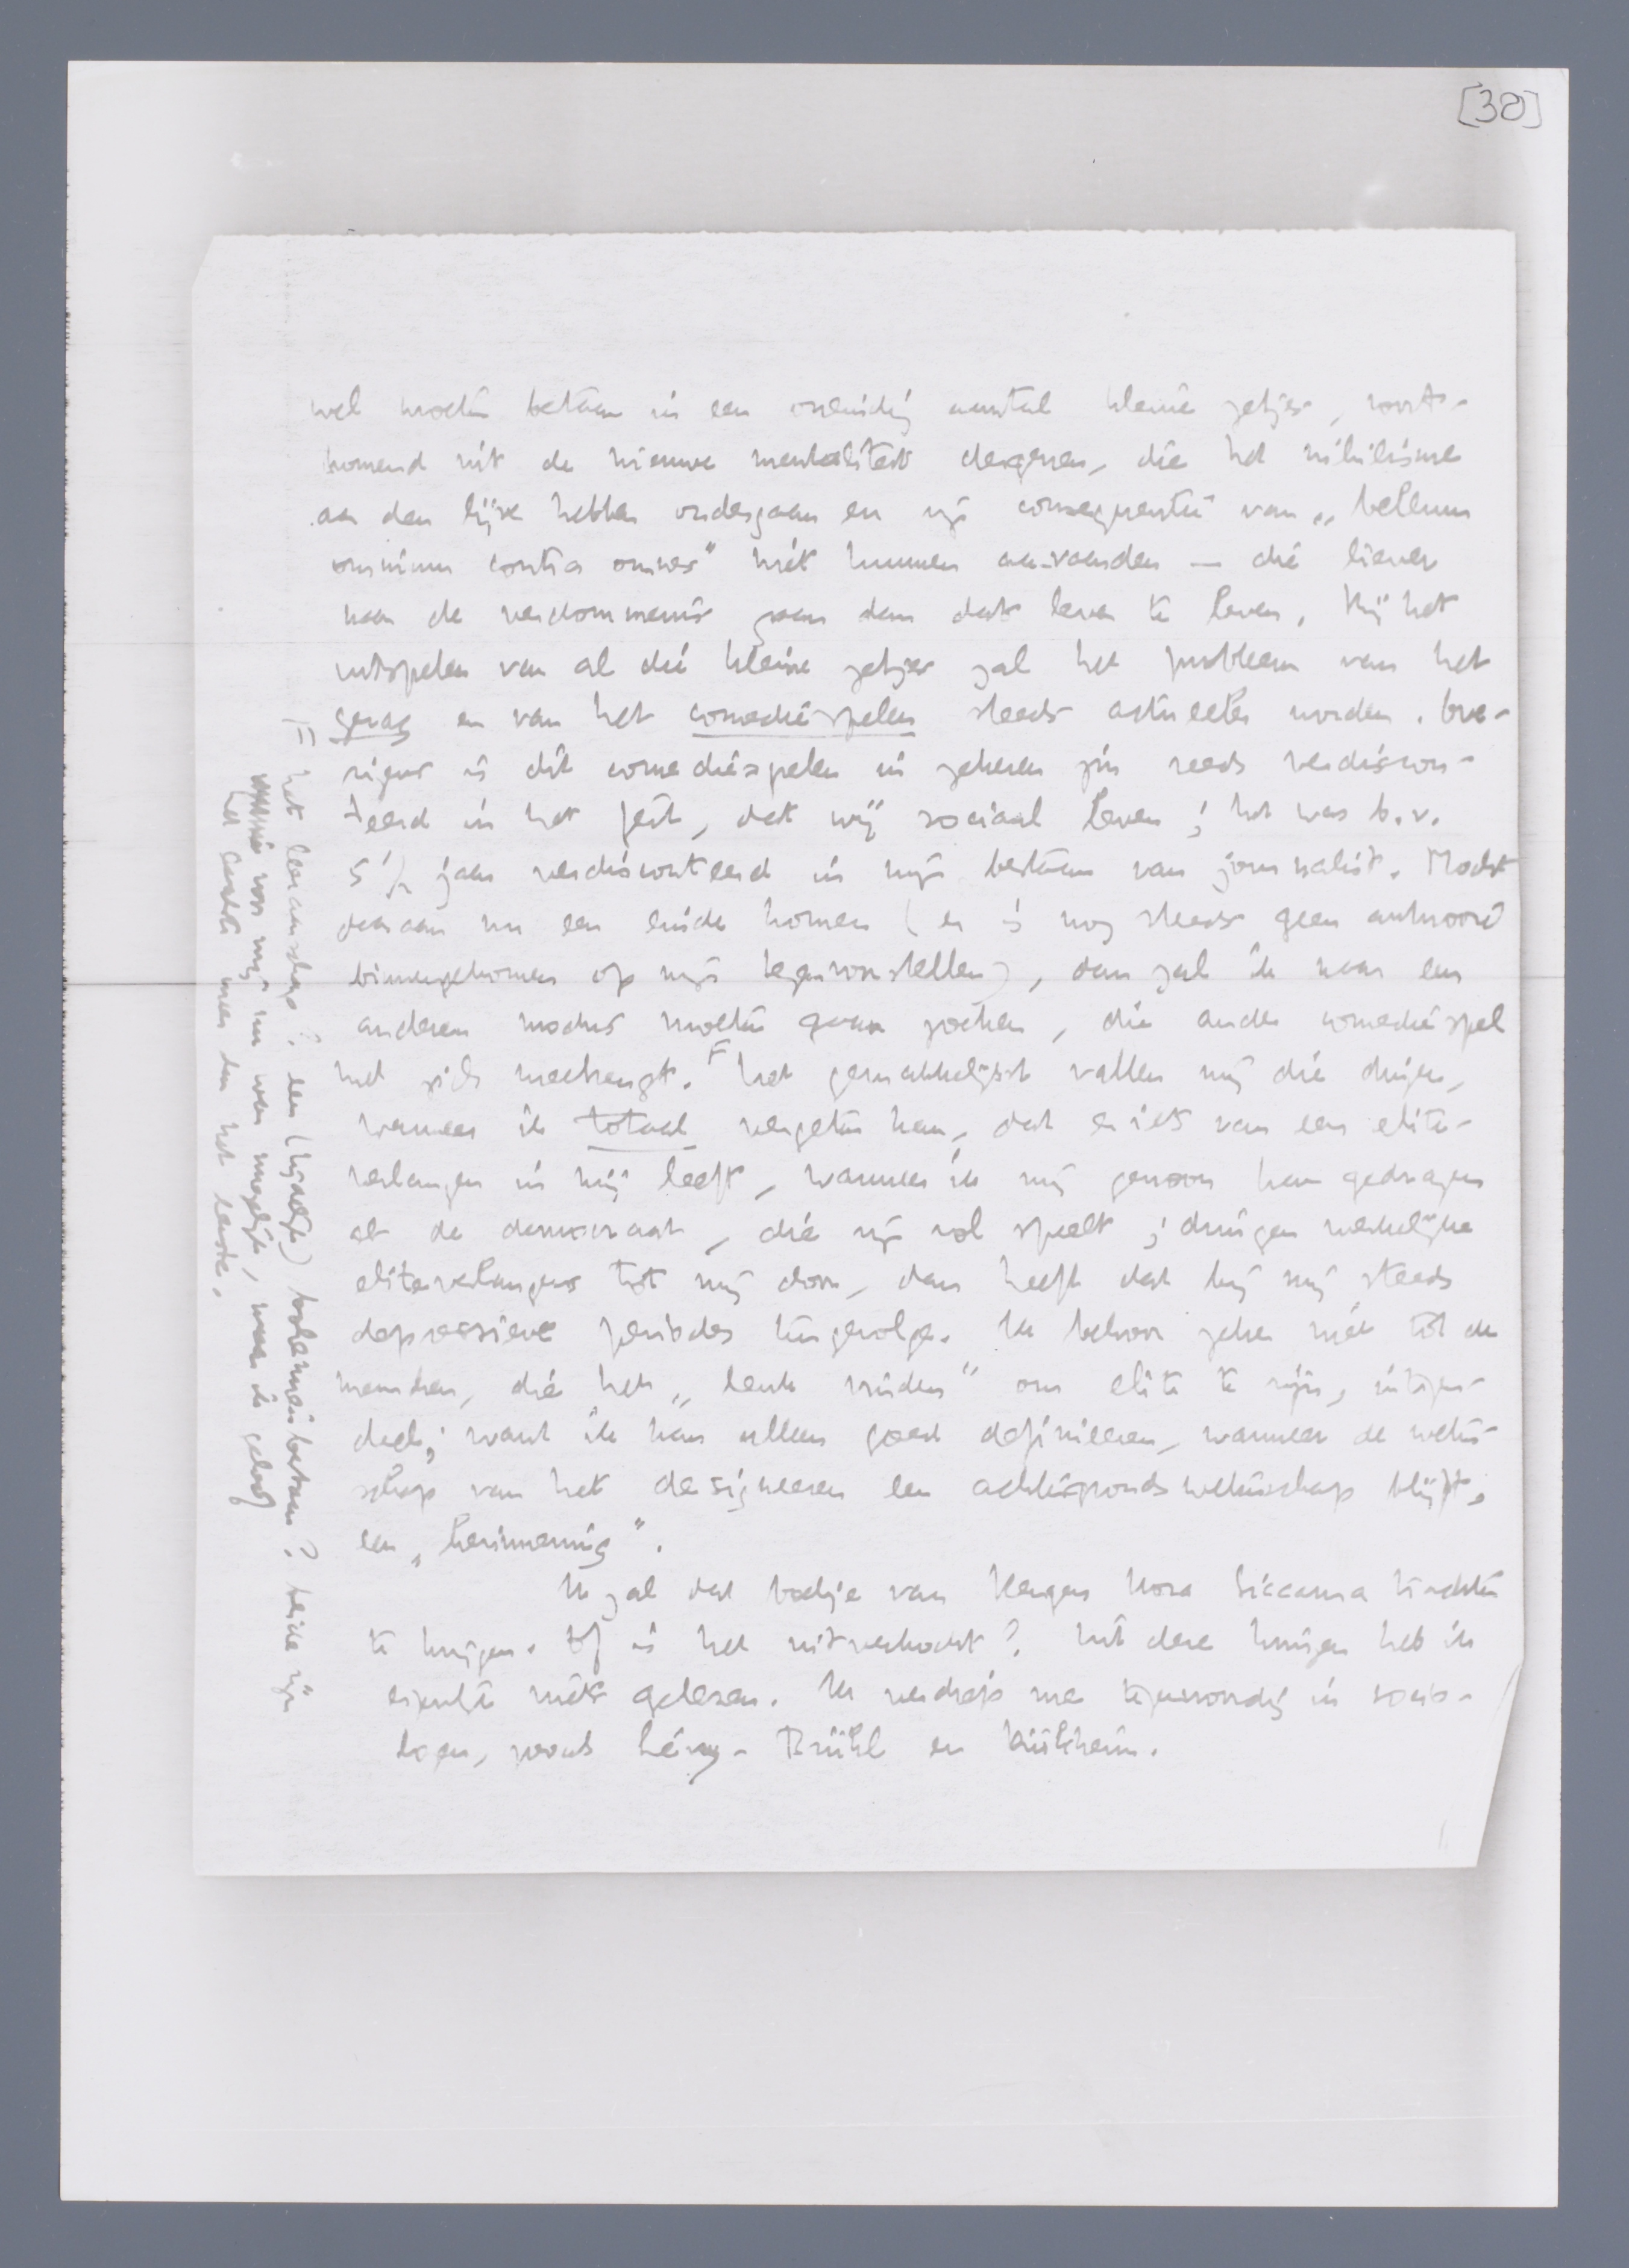 [38]
wel moeten bestaan in een oneindig aantal kleine zetjes, voort-
komend uit de nieuwe mentaliteit dergenen, die het nihilisme
aan den lijve hebben ondergaan en zijn consequentie van „bellum
omnium contra omnes" niet kunnen aanvaarden — die liever
naar de verdommenis gaan dan dat leven te leven. Bij het
uitspelen van al die kleine zetjes zal het probleem van het
gezag en van het comediespelen steeds actueeler worden. Ove-
rigens is dit comediespelen in zekeren zin reeds verdiscon-
teerd in het feit, dat wij sociaal leven; het was b.v.
5 1/2 jaar verdisconteerd in mijn bestaan van journalist. Mocht
daaraan nu een einde komen (er is nog steeds geen antwoord
binnengekomen op mijn tegenvoorstellen), dan zal ik naar een
anderen modus moeten gaan zoeken, die ander comediespel
met zich meebrengt. F Het gemakkelijkst vallen mij die dingen,
wanneer ik totaal vergeten kan, dat er iets van een elite-
verlangen in mij leeft, wanneer ik mij gewoon kan gedragen
als de democraat, die zijn rol speelt; dringen werkelijke
eliteverlangens tot mij door, dan heeft dat bij mij steeds
depressieve periodes tengevolge. Ik behoor zeker niet tot de
menschen, die het „leuk vinden" om elite te zijn, integen-
deel; want ik kan alleen goed definieeren, wanneer de weten-
schap van het designeeren een achtergrondswetenschap blijft,
een „herinnering".
Ik zal dat boekje van Kergers Hora Siccama trachten
te krijgen. Of is het uitverkocht? Uit dere kringen heb ik
eigenlijk niets gelezen. Ik verdiep me tegenwoordig in socio-
logen, zooals Lévy-Brühl en Dürkheim.
F het leeraarschap? een (tijdelijk) bohemienbestaan? beide zijn
voor mij nu wel mogelijk, maar ik geloof
het eerste meer dan het laatste.